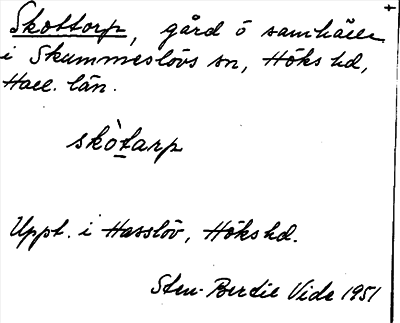 Skottorp, gård o samhälle
i Skummeslövs sn, Höks hd,
Hall. län.
skò̱tarp
Uppt. i Hasslöv, Höks hd.
Sten-Bertil Vide 1951